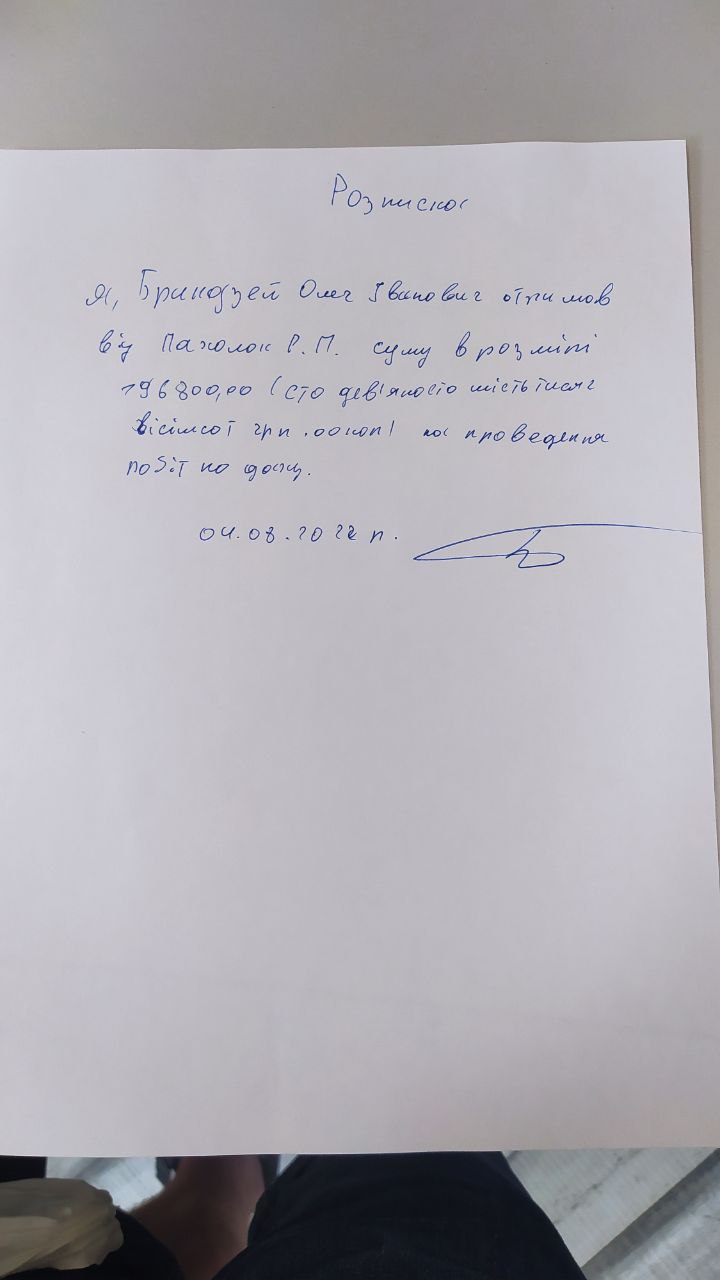 Розписка
Я, Бриндзей Олег Іванович отримав
від Пахолок Р.П. суму в розмірі
196800,00 (сто дев'яносто шість тисяч
вісімсот грн .00коп) на проведення
робіт по даху.
04.08.2022 р.